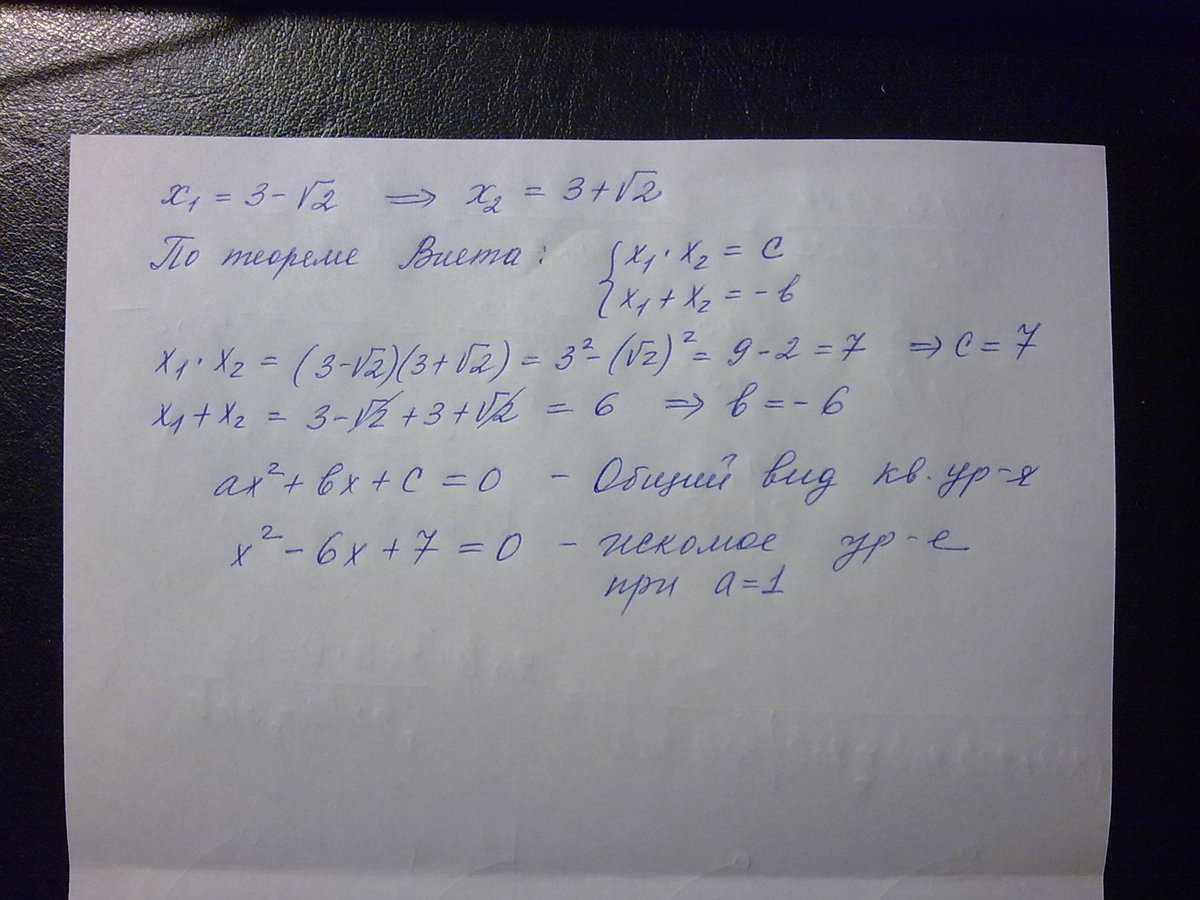 x₁ = 3-√2 ⇒ x₂ = 3+√2
По теореме Виета: { x₁·x₂ = c
x₁+x₂ = -в
x₁·x₂ = (3-√2)(3+√2) = 3²-(√2)² = 9-2 = 7 ⇒ c = 7
x₁+x₂ = 3-√2+3+√2 = 6 ⇒ в = -6
ax²+вx+c = 0 - Общий вид кв. ур-я
x²-6x+7 = 0 - искомое ур-е
при a=1